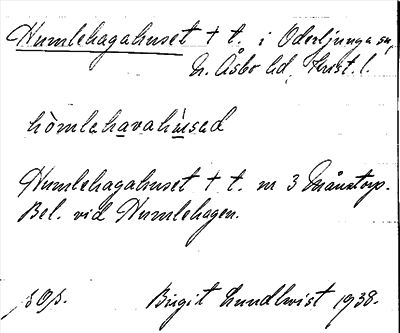 Humlehagahuset + t. i Oderljunga sn,
N. Åsbo hd, Krist. l.
hòmlehavahù̱sed
Humlehagahuset + t. nr 3 Månstorp.
Bel. vid Humlehagen.
Birgit Lundkvist 1938.